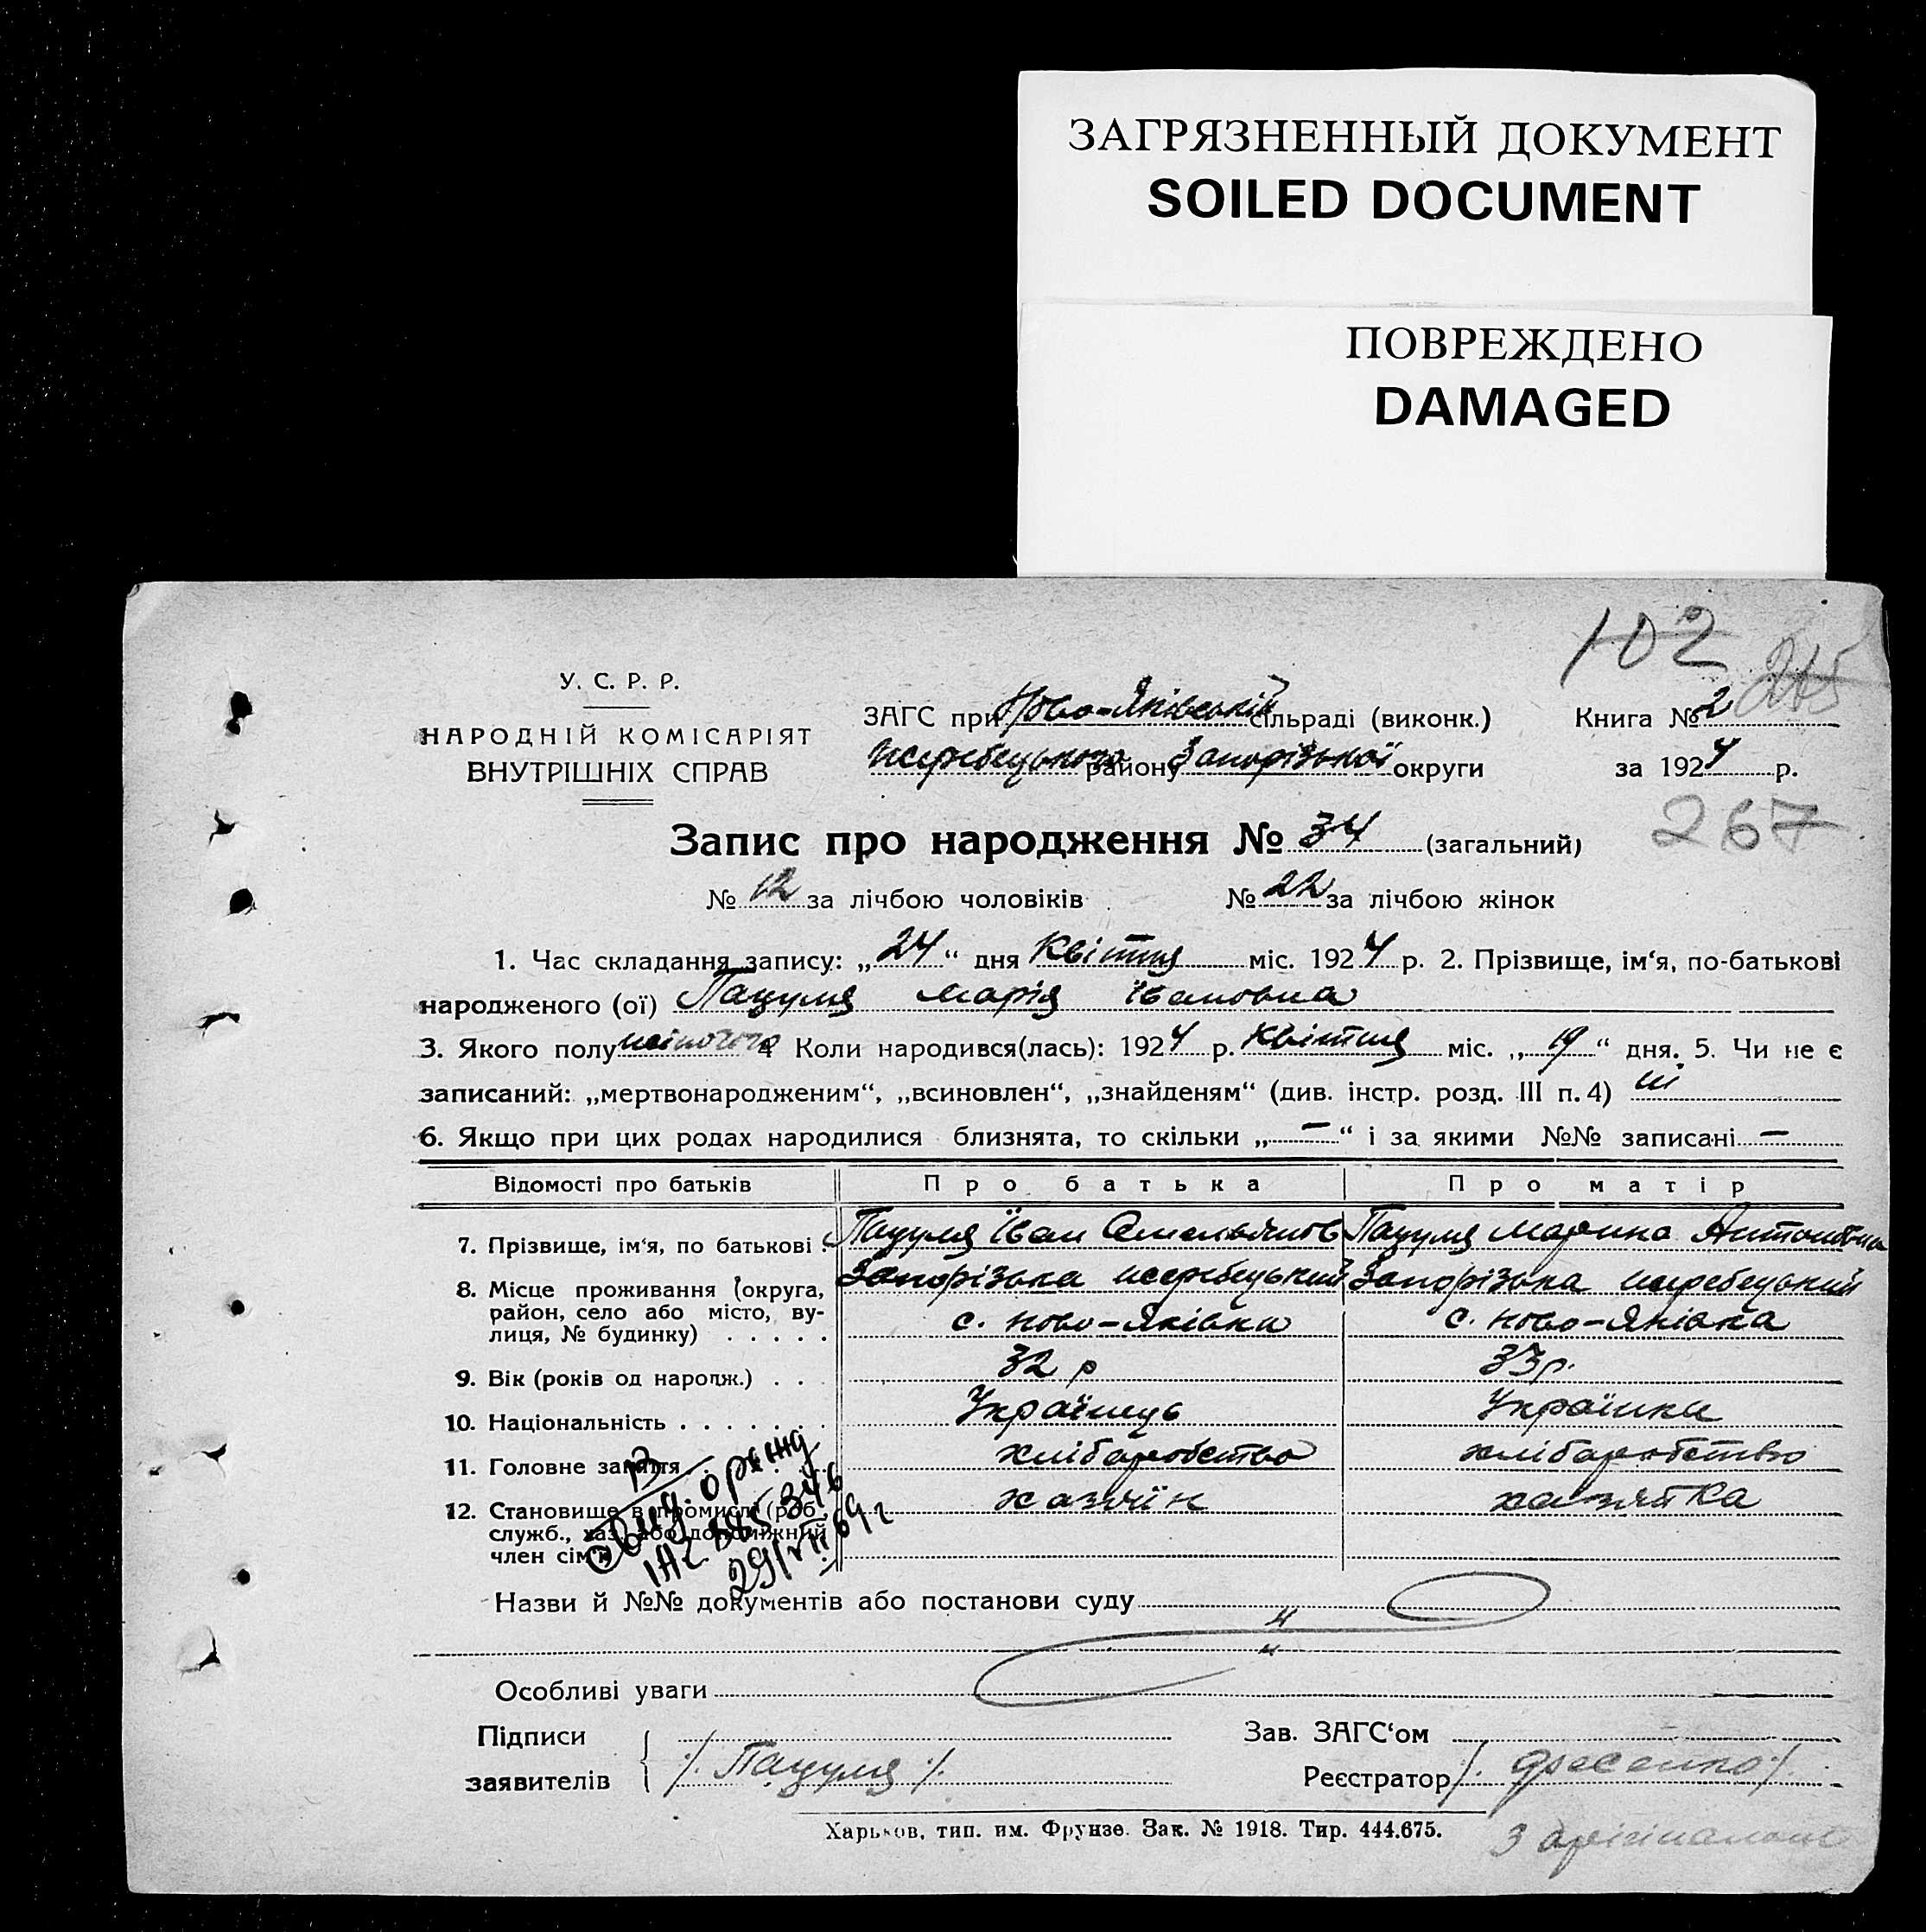 ЗАГРЯЗНЕННЫЙ ДОКУМЕНТ
SOILED DOCUMENT
ПОВРЕЖДЕНО
DAMAGED
102
245
У. С. Р. Р.
НАРОДНІЙ КОМІСАРІЯТ
ВНУТРІШНІХ СПРАВ
ЗАГС при Ново-Яківській сільраді (виконк.)
Жеребецького району Запорізької округи
Книга № 2
за 1924 р.
267
Запис про народження № 34 (загальний)
№ 12 за лічбою чоловіків № 22 за лічбою жінок
1. Час складання запису: „24“ дня Квітня міс. 1924 р. 2. Прізвище, ім‘я, по-батькові
народженого (ої) Пацуля Марія Івановна
3. Якого полу жіночого 4 Коли народився(лась): 1924 р. Квітня міс. „19“ дня. 5. Чи не є
записаний: „мертвонародженим“, „всиновлен“, „знайденям“ (див. інстр. розд. III п. 4) ні
6. Якщо при цих родах народилися близнята, то скільки „—“ і за якими №№ записані —
Відомості про батьків Про батька Про матір
7. Прізвище, ім‘я, по батькові . Пацуля Іван Омельянов Пацуля Марина Антоновна
8. Місце проживання (округа, Запорізька жеребецький Запорізька жеребецький
район, село або місто, ву-
лиця, № будинку) . . . . . с. Ново-Яківка с. Ново-Яківка
9. Вік (років од народж.) . . . 32 р 33 р.
10. Національність . . . . . . . Українець Українка
11. Головне заняття . хліборобство хліборобство
12. Становище в промислі (роб., хазяїн хазяйка
служб., хаз. або допоміжний
член сім‘ї
29/VII 69 г
Назви й №№ документів або постанови суду
Особливі уваги
Підписи
заявителів /. Пацуля ./
Зав. ЗАГС‘ом
Реєстратор /. Фесенко ./
Харьков, тип. им. Фрунзе. Зак. № 1918. Тир. 444.675.
З орігіналом